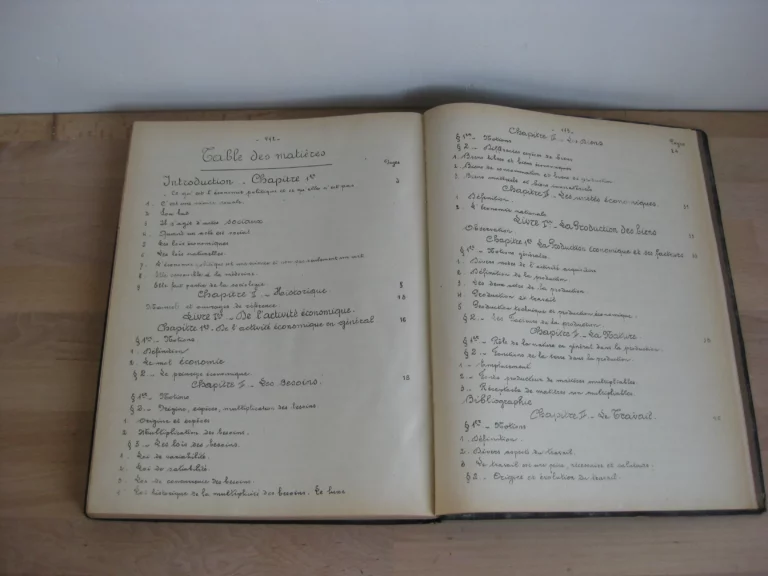 Table des matières
Pages
Introduction - Chapitre 1er 3
- Ce qu'est l'économie politique et ce qu'elle n'est pas
1. C'est une science sociale
2. Son but
3. Il s'agit d'actes sociaux
4. Quand un acte est social
5. Les lois économiques
6. Les lois naturelles.
7. L'économie politique est une science et non pas seulement un art
8. Elle ressemble à la médecine.
9. Elle fait partie de la sociologie. 5
Chapitre 2 - Historique.
Manuels et ouvrages de référence 13
Livre 1er - De l'activité économique.
Chapitre 1er - De l'activité économique en général 16
§ 1er - Notions
1. Définition
2. Le mot économie
§ 2 - Le principe économique
Chapitre 2 - Les Besoins. 18
§ 1er - Notions
§ 2 - Origine, espèces, multiplication des besoins
1. Origine et espèces
2. Multiplication des besoins.
§ 3 - Les lois des besoins.
1. Loi de variabilité.
2. Loi de satiabilité.
3. Loi de concurrence des besoins.
4. Loi historique de la multiplicité des besoins. Le luxe
Chapitre 3 - Les Biens
Pages
§ 1er - Notions
§ 2 - Différentes espèces de biens
1. Biens libres et biens économiques
2. Biens de consommation et biens de production
3. Biens matériels et biens immatériels
Chapitre 4 - Les unités économiques
1. Définition.
2. L'économie nationale
Livre 2 - La Production des biens
Observation
Chapitre 1er La Production économique et ses facteurs
§ 1er - Notions générales.
1. Divers actes de l'activité acquisitive
2. Définition de la production
3. Les deux actes de la production.
4. Production et travail
5. Production technique et production économique.
§ 2 - Les facteurs de la production
Chapitre 2 - La Nature
§ 1er - Rôle de la nature en général dans la production
§ 2 - Fonctions de la terre dans la production.
1. Emplacement
2. Fonds producteur de matières multipliables
3. Réceptacle de matières non multipliables.
Bibliographie
Chapitre 3 - Le Travail.
§ 1er - Notions
1. Définition.
2. Divers aspects du travail.
3. Le travail est une peine, nécessaire et salutaire.
§ 2 - Origine et évolution du travail.